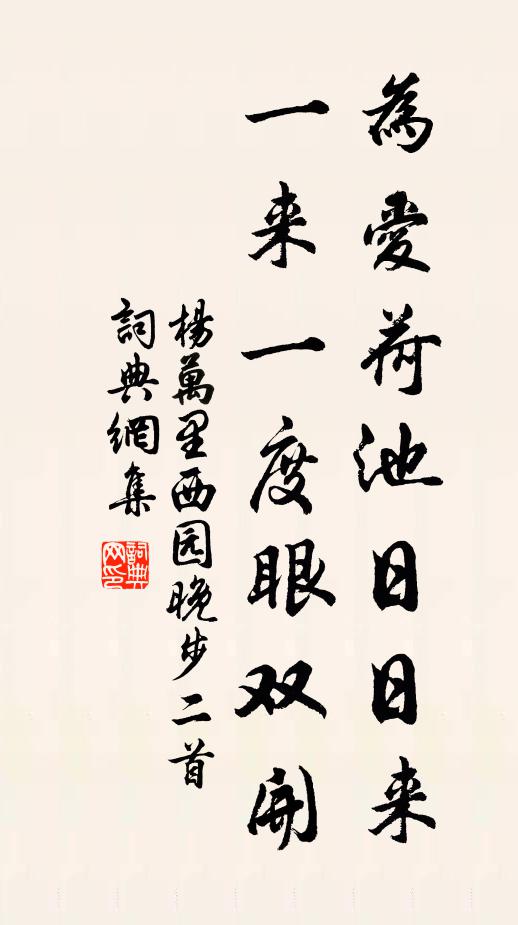 為愛荷池日日来
一来一度眼双開
楊萬里西园晚步二首
詞典網集
詞典网印